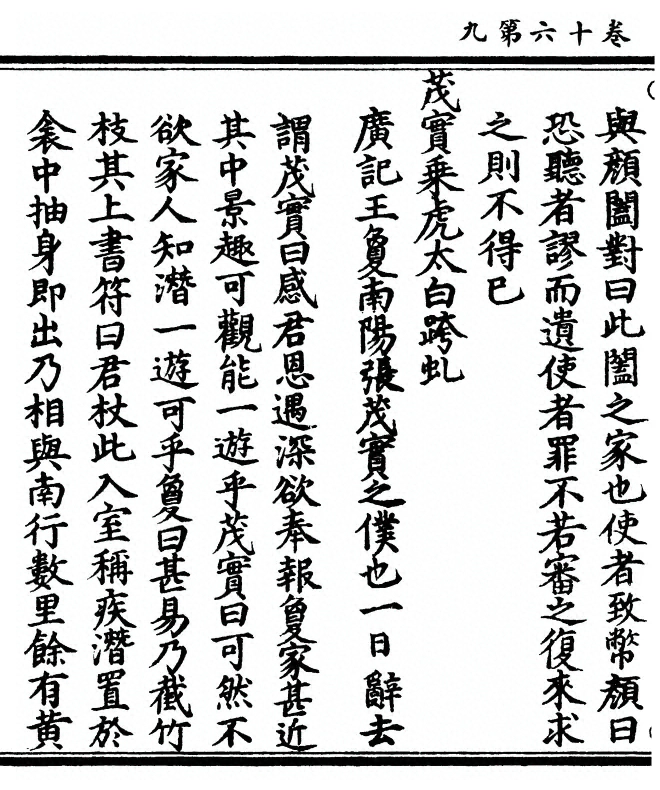 卷十六第九
與顔闔對曰此闔之家也使者致幣顔曰
恐聽者謬而遺使者罪不若審之復來求
之則不得已
茂實乗虎太白跨虬
廣記王敻南陽張茂實之僕也一日辭去
謂茂實曰感君恩遇深欲奉報敻家甚近
其中景趣可觀能一遊乎茂實曰可然不
欲家人知潛一遊可乎敻曰甚易乃截竹
枝其上書符曰君杖此入室稱疾潛置於
衾中抽身即出乃相與南行數里餘有黄